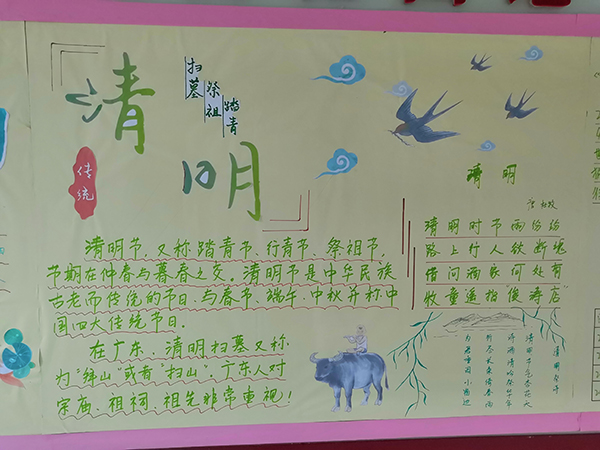 清明
扫墓
祭祖
踏青
传统
清明节,又称踏青节、行青节、祭祖节,
节期在仲春与暮春之交。清明节是中华民族
古老而传统的节日,与春节、端午、中秋并称中
国四大传统节日。
在广东,清明扫墓又称
为"拜山"或者"扫山",广东人对
宗庙、祖祠、祖先非常重视!
清明
清明时节雨纷纷
路上行人欲断魂
借问酒家何处有
牧童遥指店